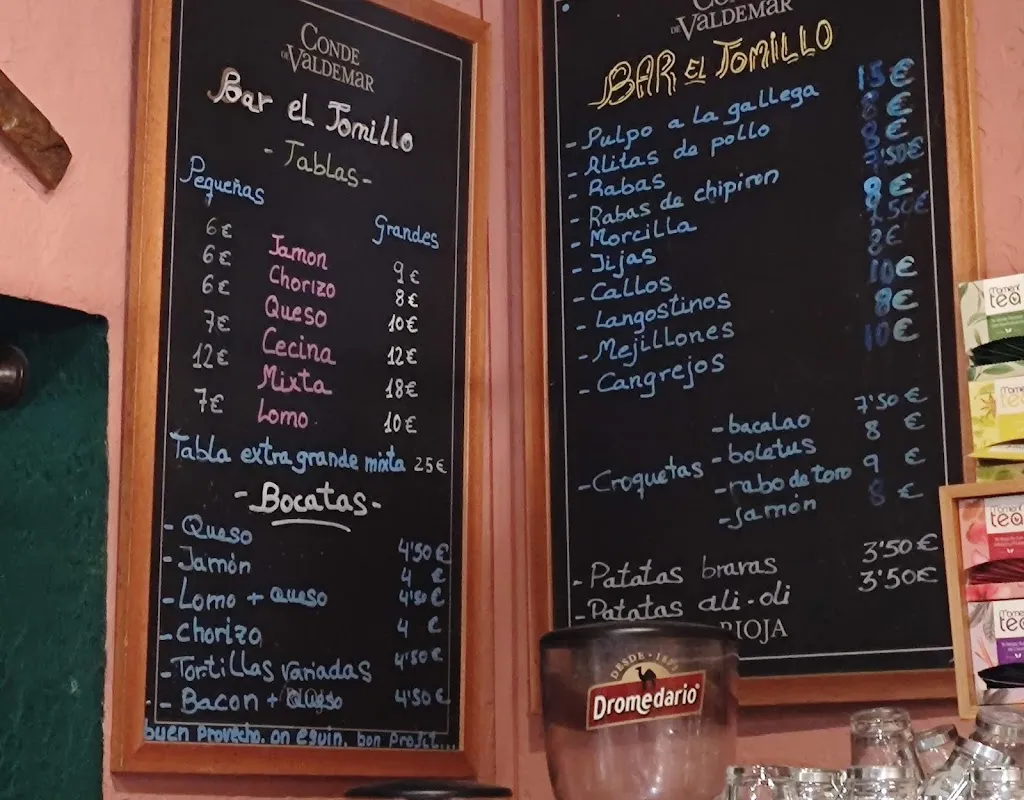 CONDE
DE VALDEMAR
Bar el Tomillo
- Tablas -
Pequeñas Grandes
6€ Jamon 9€
6€ Chorizo 8€
6€ Queso 10€
7€ Cecina 12€
12€ Mixta 18€
7€ Lomo 10€
Tabla extra grande mixta 25€
- Bocatas -
- Queso 4'50€
- Jamón 4 €
- Lomo + queso 4'50€
- Chorizo 4 €
- Tortillas variadas 4'50€
- Bacon + queso 4'50€
buen provecho. on eguin. bon profit...
CONDE
DE VALDEMAR
BAR EL TOMILLO
- Pulpo a la gallega 15€
- Alitas de pollo 8€
- Rabas 8€
- Rabas de chipiron 7'50€
- Morcilla 8€
- Jijas 7'50€
- Callos 8€
- Langostinos 10€
- Mejillones 8€
- Cangrejos 10€
- Croquetas
- bacalao 7'50€
- boletus 8 €
- rabo de toro 9 €
- jamón 8 €
- Patatas bravas 3'50€
- Patatas ali-oli 3'50€
RIOJA
DESDE
Dromedario
moment
tea
moment
tea
moment
tea